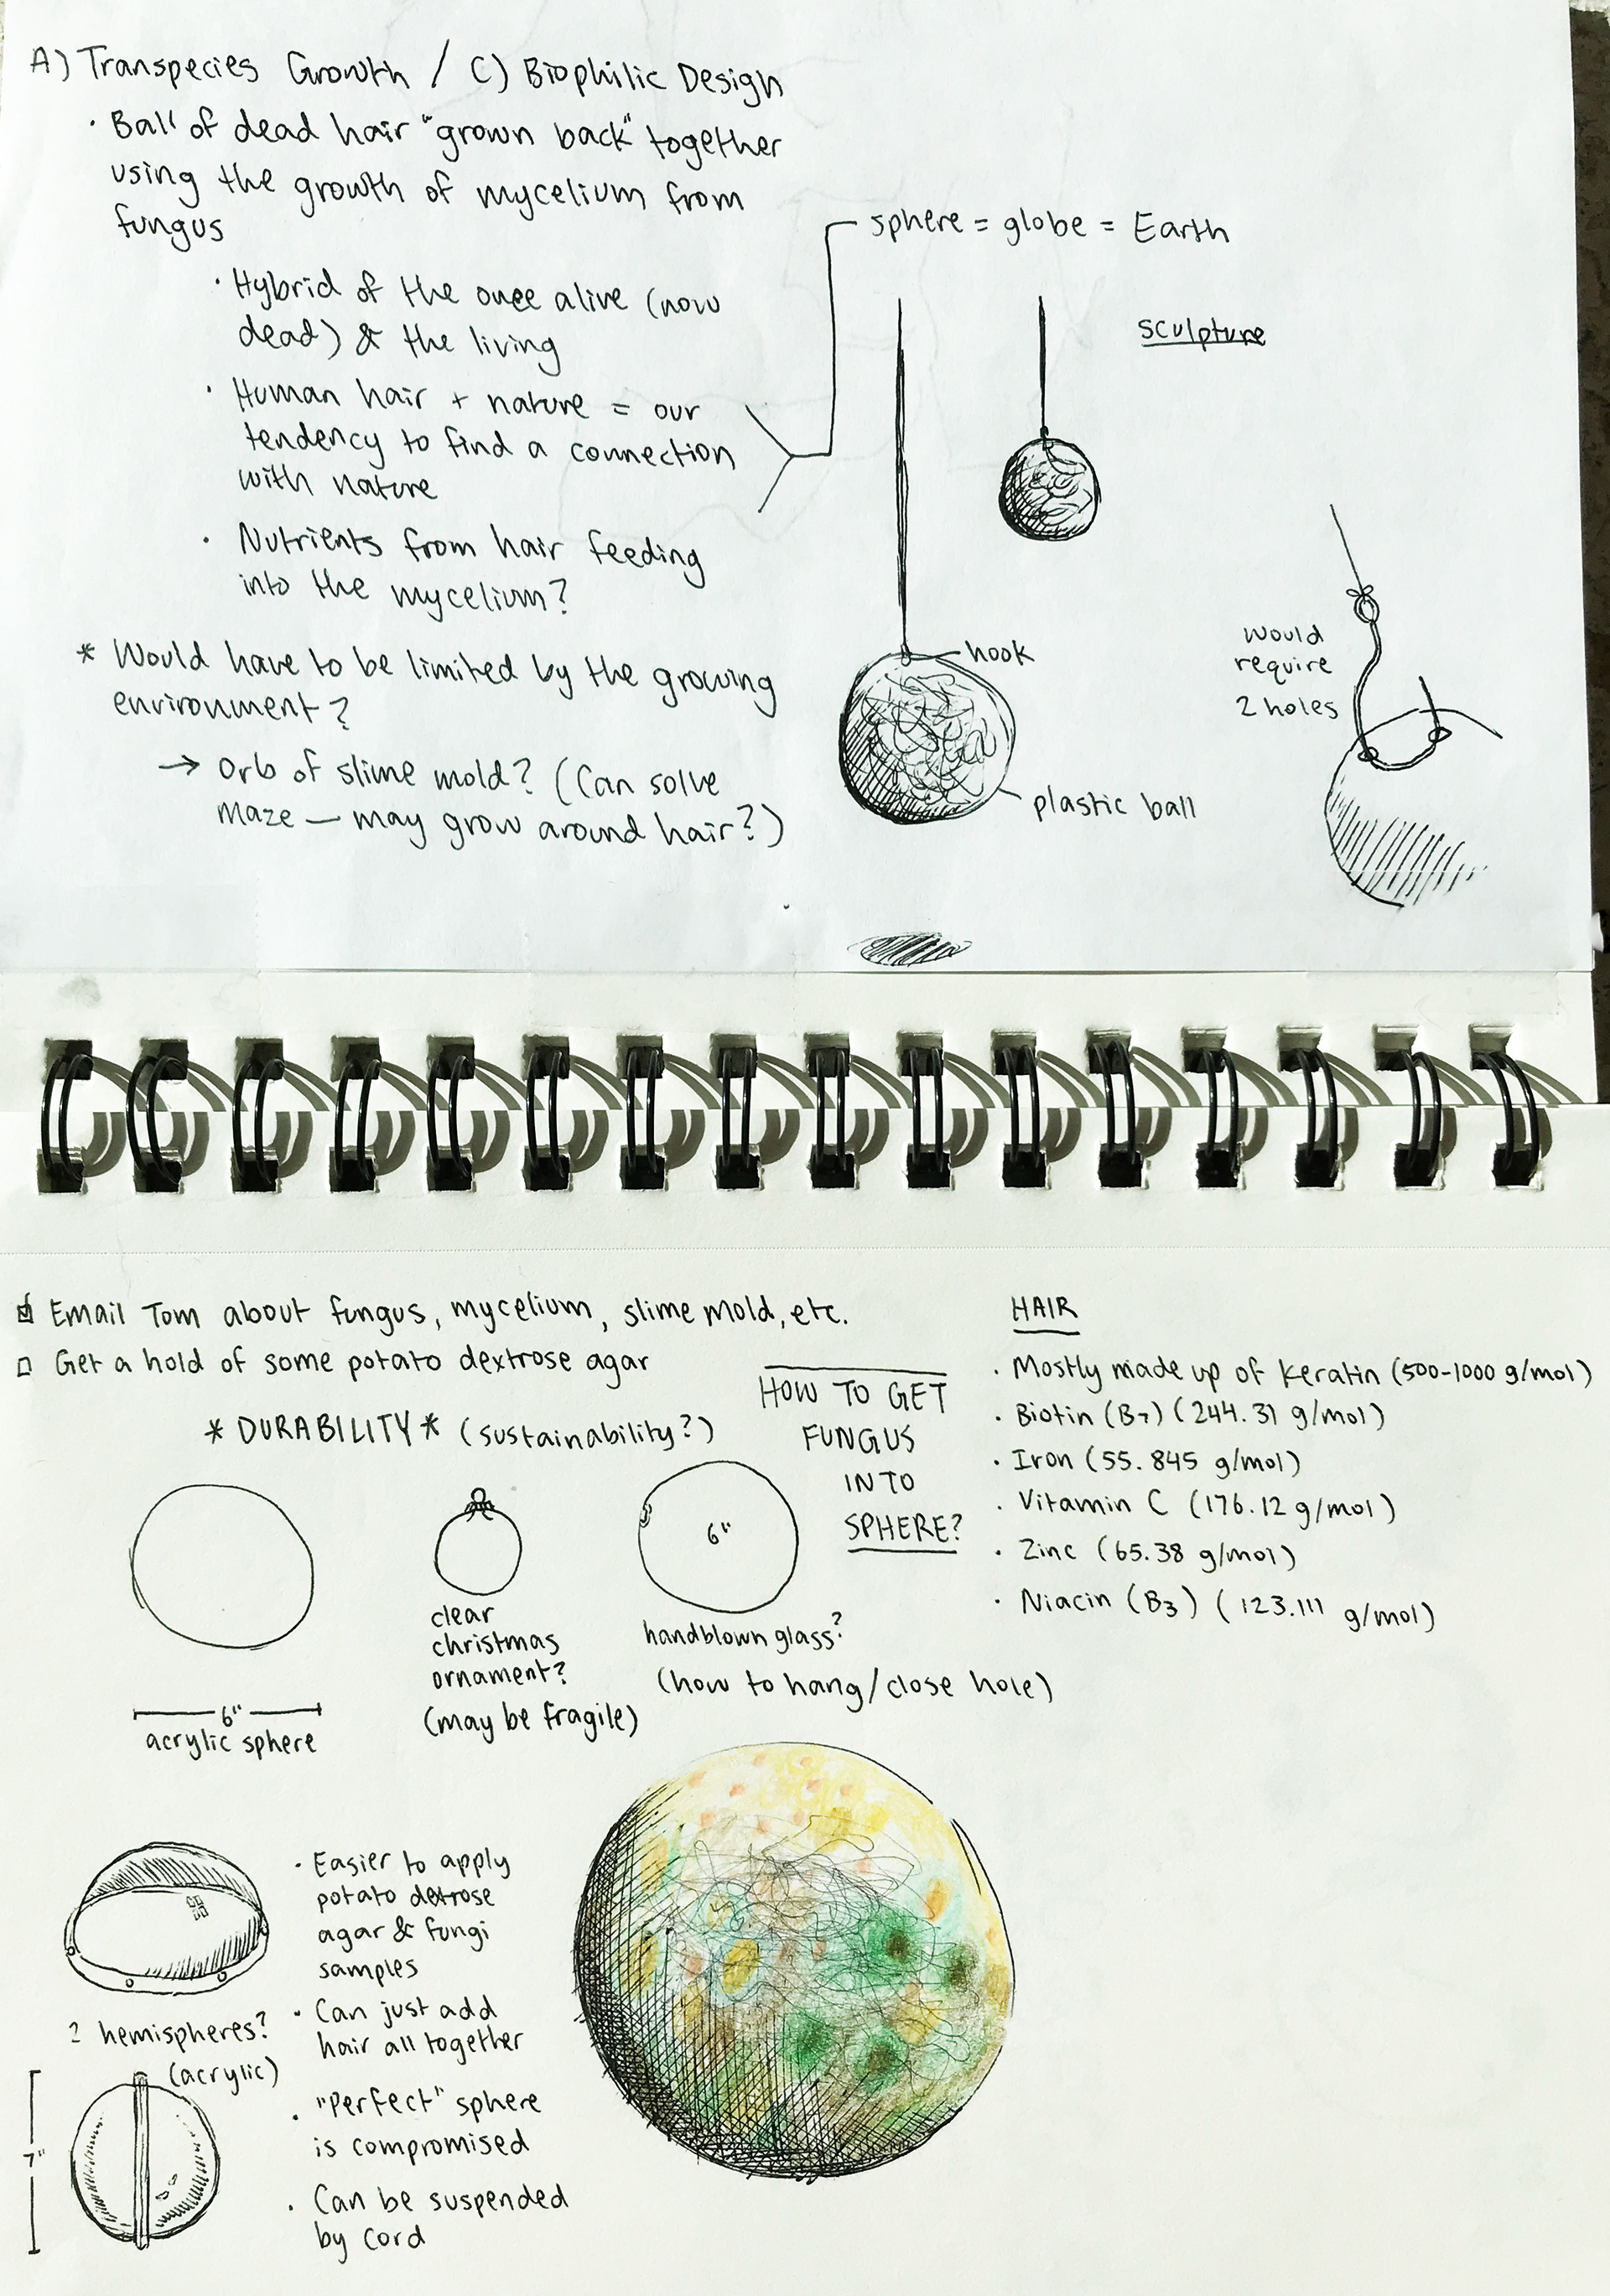 A) Transpecies Growth / C) Biophilic Design
· Ball of dead hair "grown back" together
using the growth of mycelium from
fungus
· Hybrid of the once alive (now
dead) & the living
· Human hair + nature = our
tendency to find a connection
with nature
· Nutrients from hair feeding
into the mycelium?
* Would have to be limited by the growing
environment?
→ Orb of slime mold? (Can solve
maze — may grow around hair?)
sphere = globe = Earth
sculpture
hook
plastic ball
would
require
2 holes
☑ Email Tom about fungus, mycelium, slime mold, etc.
☐ Get a hold of some potato dextrose agar
* DURABILITY * (sustainability?)
6"
acrylic sphere
clear
christmas
ornament?
(may be fragile)
6"
handblown glass?
(how to hang/close hole)
HOW TO GET
FUNGUS
INTO
SPHERE?
HAIR
· Mostly made up of keratin (500-1000 g/mol)
· Biotin (B7) (244.31 g/mol)
· Iron (55.845 g/mol)
· Vitamin C (176.12 g/mol)
· Zinc (65.38 g/mol)
· Niacin (B3) (123.111 g/mol)
2 hemispheres?
(acrylic)
7"
· Easier to apply
potato dextrose
agar & fungi
samples
· Can just add
hair all together
· "Perfect" sphere
is compromised
· Can be suspended
by cord